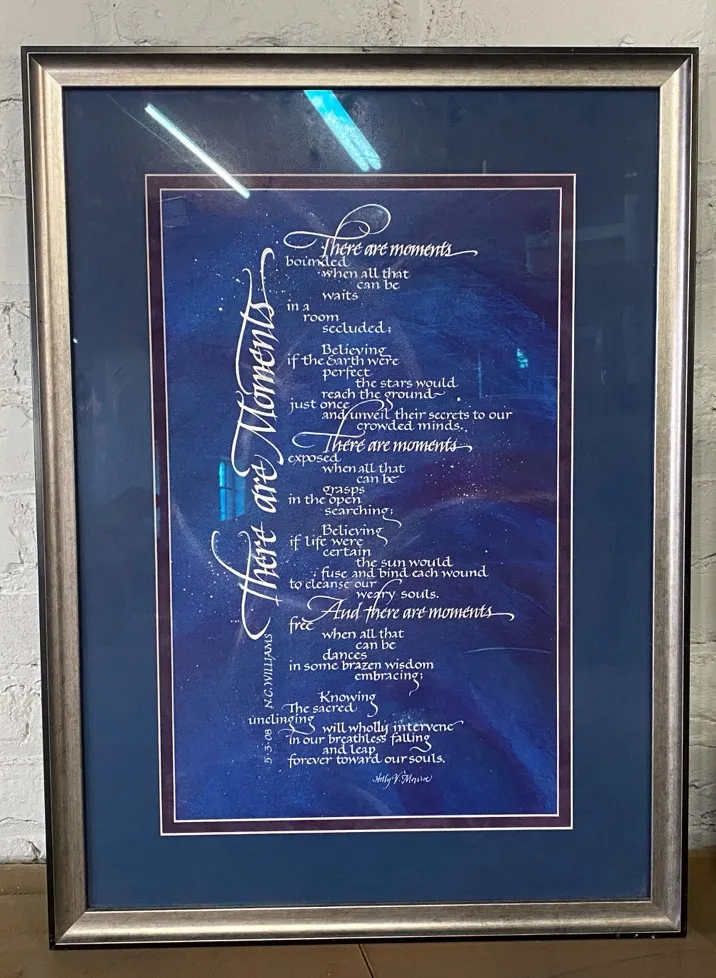 There are Moments
5·3·08 N.C. WILLIAMS
There are moments
bounded
when all that
can be
waits
in a
room
secluded;
Believing
if the Earth were
perfect
the stars would
reach the ground
just once
and unveil their secrets to our
crowded minds.
There are moments
exposed
when all that
can be
grasps
in the open
searching;
Believing
if life were
certain
the sun would
fuse and bind each wound
to cleanse our
weary souls.
And there are moments
free
when all that
can be
dances
in some brazen wisdom
embracing;
Knowing
The sacred
unclinging
will wholly intervene
in our breathless falling
and leap
forever toward our souls.
Holly V. Monroe